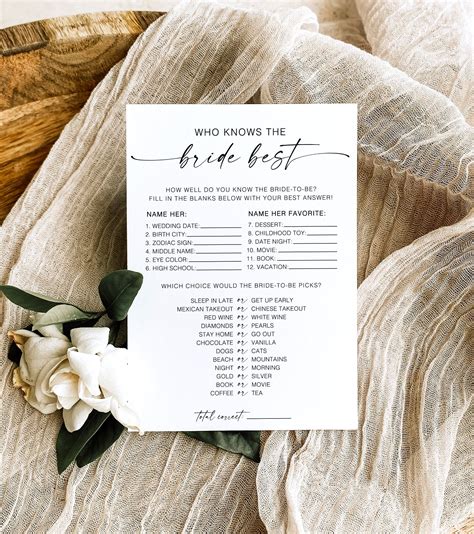 WHO KNOWS THE
bride best
HOW WELL DO YOU KNOW THE BRIDE-TO-BE?
FILL IN THE BLANKS BELOW WITH YOUR BEST ANSWER!
NAME HER:
1. WEDDING DATE:
2. BIRTH CITY:
3. ZODIAC SIGN:
4. MIDDLE NAME:
5. EYE COLOR:
6. HIGH SCHOOL:
NAME HER FAVORITE:
7. DESSERT:
8. CHILDHOOD TOY:
9. DATE NIGHT:
10. MOVIE:
11. BOOK:
12. VACATION:
WHICH CHOICE WOULD THE BRIDE-TO-BE PICKS?
SLEEP IN LATE or GET UP EARLY
MEXICAN TAKEOUT or CHINESE TAKEOUT
RED WINE or WHITE WINE
DIAMONDS or PEARLS
STAY HOME or GO OUT
CHOCOLATE or VANILLA
DOGS or CATS
BEACH or MOUNTAINS
NIGHT or MORNING
GOLD or SILVER
BOOK or MOVIE
COFFEE or TEA
total correct: